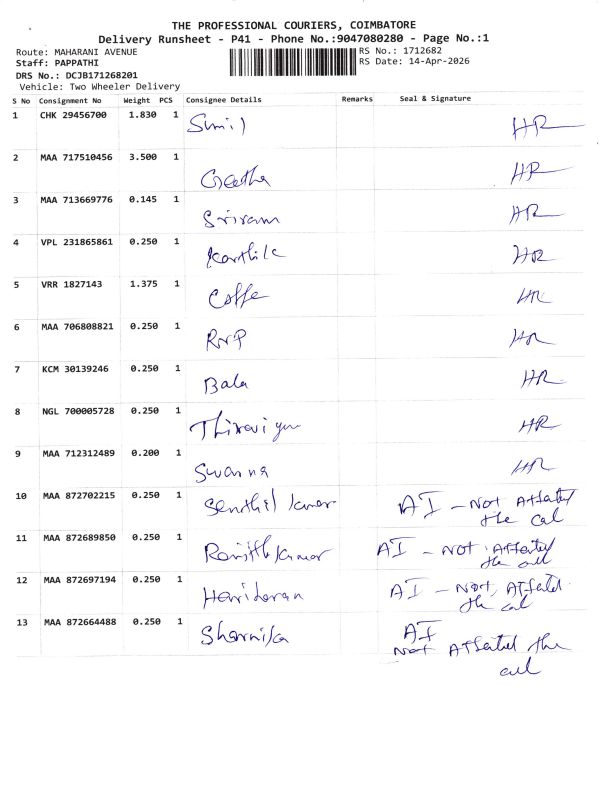 THE PROFESSIONAL COURIERS, COIMBATORE
Delivery Runsheet - P41 - Phone No.:9047080280 - Page No.:1
Route: MAHARANI AVENUE RS No.: 1712682
Staff: PAPPATHI RS Date: 14-Apr-2026
DRS No.: DCJB171268201
Vehicle: Two Wheeler Delivery
S No Consignment No Weight PCS Consignee Details Remarks Seal & Signature
1 CHK 29456700 1.830 1 Sunil HR
2 MAA 717510456 3.500 1 Geetha HR
3 MAA 713669776 0.145 1 Sriram HR
4 VPL 231865861 0.250 1 Karthik HR
5 VRR 1827143 1.375 1 Coffe HR
6 MAA 706808821 0.250 1 HR
7 KCM 30139246 0.250 1 Bala HR
8 NGL 700005728 0.250 1 HR
9 MAA 712312489 0.200 1 Swarna HR
10 MAA 872702215 0.250 1 Senthil kumar AI - Not
the cal
11 MAA 872689850 0.250 1 AI - Not
the
12 MAA 872697194 0.250 1 Hariharan AI - Not
the cal
13 MAA 872664488 0.250 1 AI
Not the